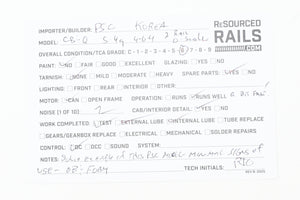 IMPORTER/BUILDER: PSC KOREA
RESOURCED RAILS .COM
MODEL: CB&Q S-4a 4-6-4 2 Rail O Scale
OVERALL CONDITION/TCA GRADE: C-1-2-3-4-5-6-7-8-9
PAINT: NO FAIR GOOD EXCELLENT GLAZING YES NO
TARNISH: NONE MILD MODERATE HEAVY SPARE PARTS: YES NO
LIGHTING: FRONT REAR INTERIOR OTHER
MOTOR: CAN OPEN FRAME OPERATION: RUNS RUNS WELL
NOISE (1 OF 10) 2 CAB/INTERIOR DETAIL: YES NO
WORK COMPLETED: TEST EXTERNAL LUBE INTERNAL LUBE TUBE REPLACE
GEARS/GEARBOX REPLACE ELECTRICAL MECHANICAL SOLDER REPAIRS
CONTROL: DC DCC SOUND DCS OTHER
NOTES: example of this PSC model minimal signs of
USE
TECH INITIALS: